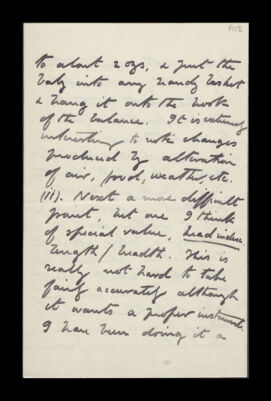 f112
to about 2 ozs, & put the
baby into any handy basket
& hang it onto the hook
of the balance. It is extremely
interesting to note changes
produced by alteration
of air, food, weather, etc.
(iii). Next a more difficult
point, but one I think
of special value, head index
length/breadth. This is
really not hard to take
fairly accurately although
it wants a proper instrument.
I have been doing it a